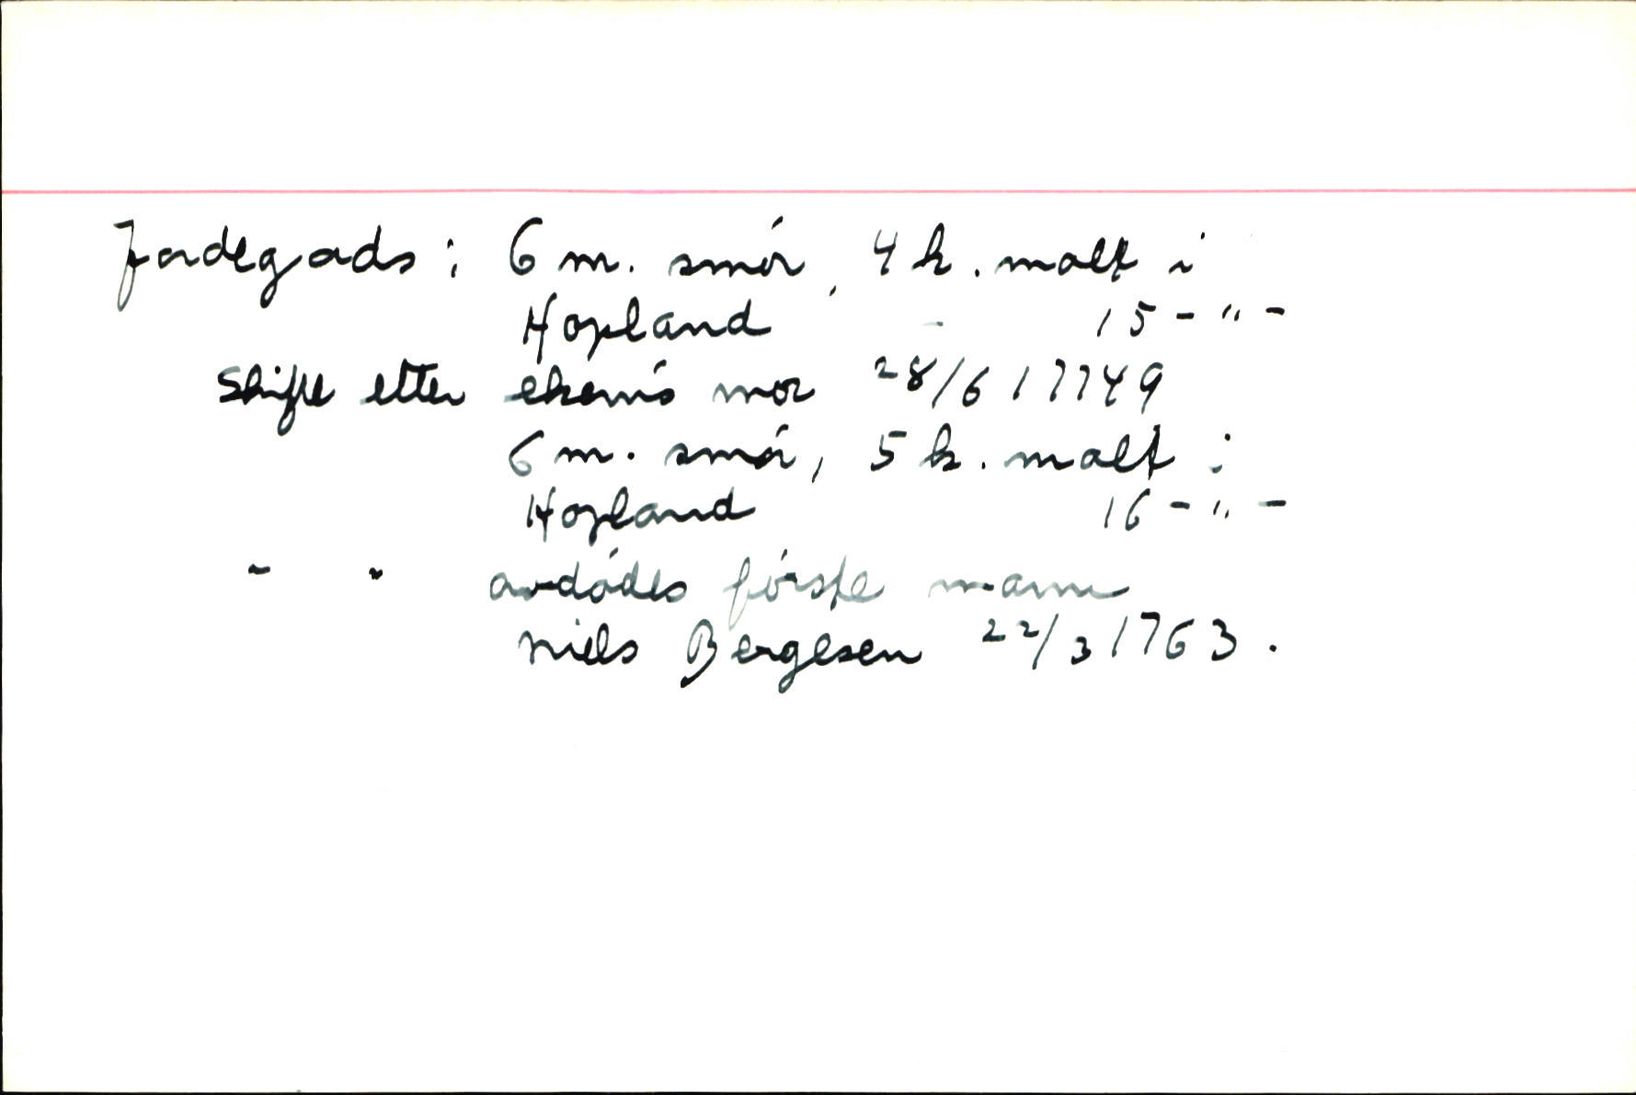 Jordegods: 6 m. smör, 4 k. malt i
Hopland - 15 - " -
Skifte etter ekem's mor 28/6 17749
6 m. smör, 5 k. malt i
Hopland 16 - " -
" " avdödes förste mann
Niels Bergesen 22/3 1763.